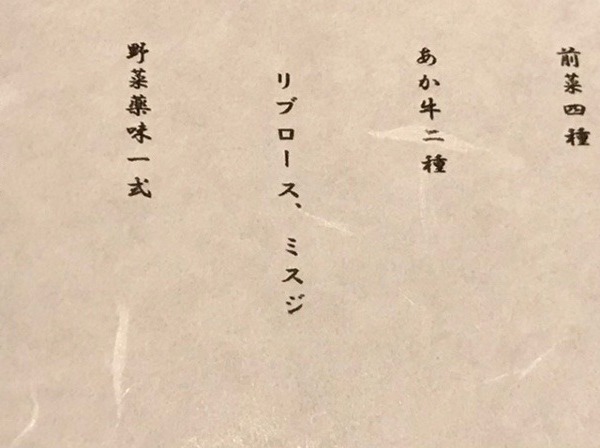 前菜四種
あか牛二種
リブロース、ミスジ
野菜薬味一式